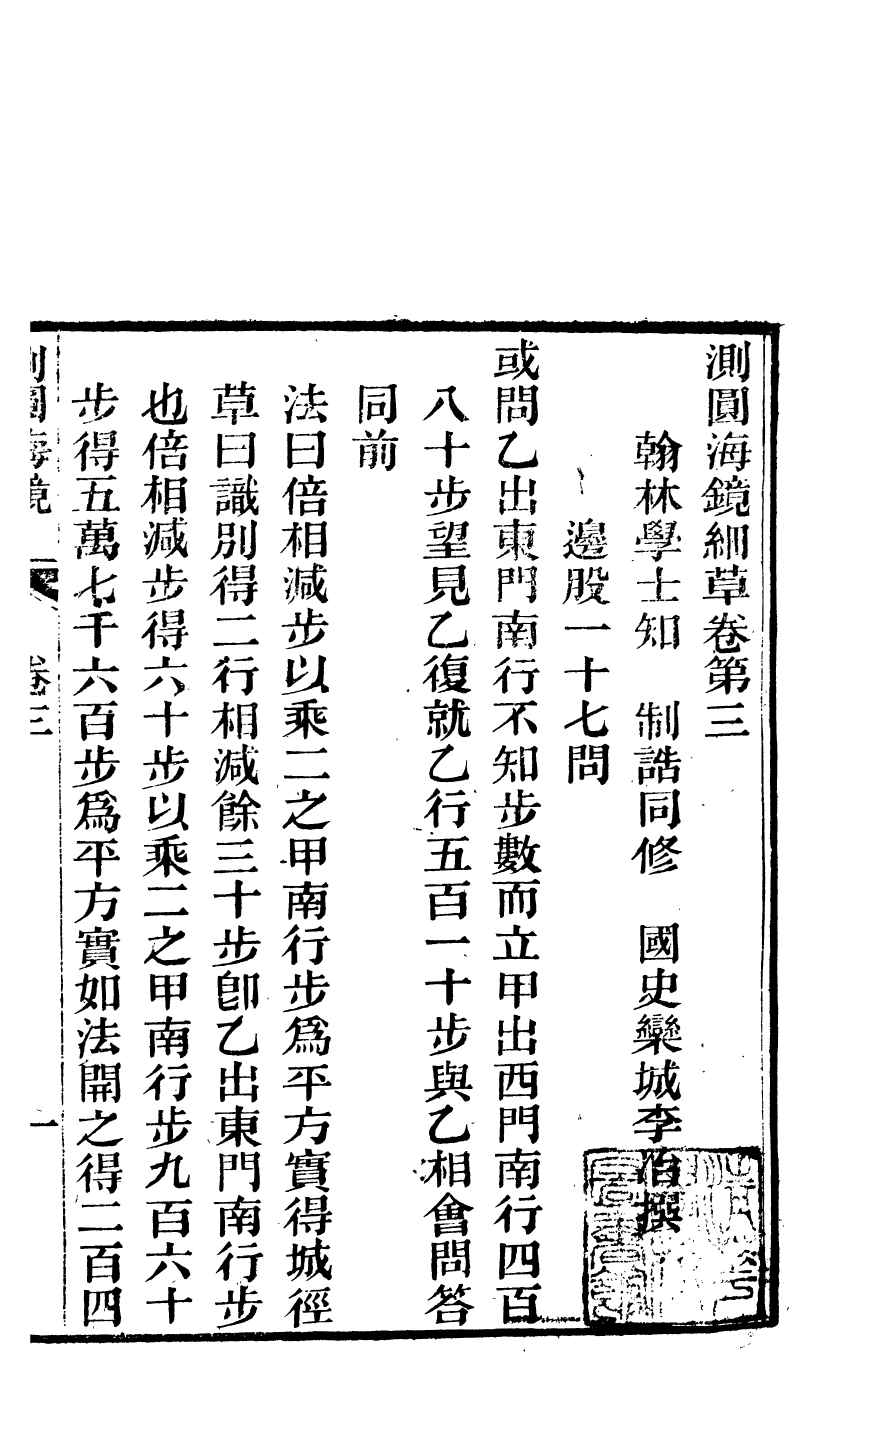 測圓海鏡細草卷第三
翰林學士知　制誥同修　國史欒城李冶撰
邊股一十七問
或問乙出東門南行不知步數而立甲出西門南行四百
八十步望見乙復就乙行五百一十步與乙相會問答
同前
法曰倍相減步以乘二之甲南行步爲平方實得城徑
草曰識別得二行相減餘三十步卽乙出東門南行步
也倍相減步得六十步以乘二之甲南行步九百六十
步得五萬七千六百步爲平方實如法開之得二百四
測圓海鏡　卷三　一